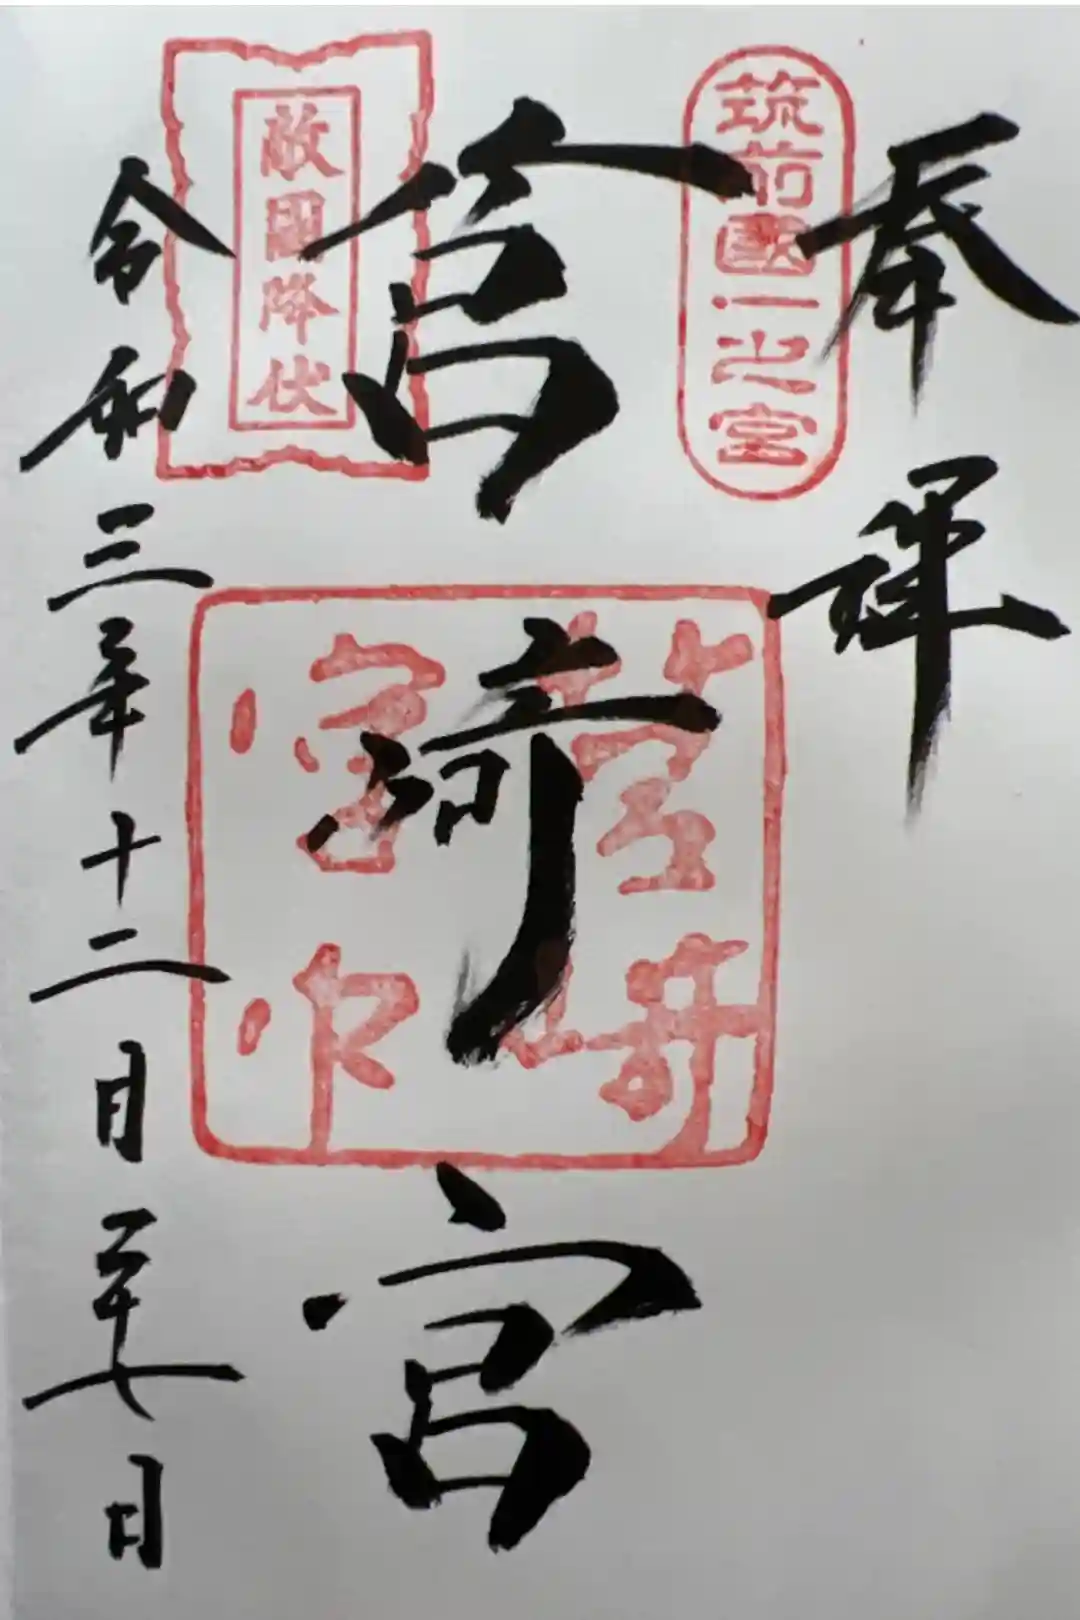 奉拝
筑前國一之宮
筥崎宮
筥崎宮印
敵國降伏
令和三年十二月二十七日